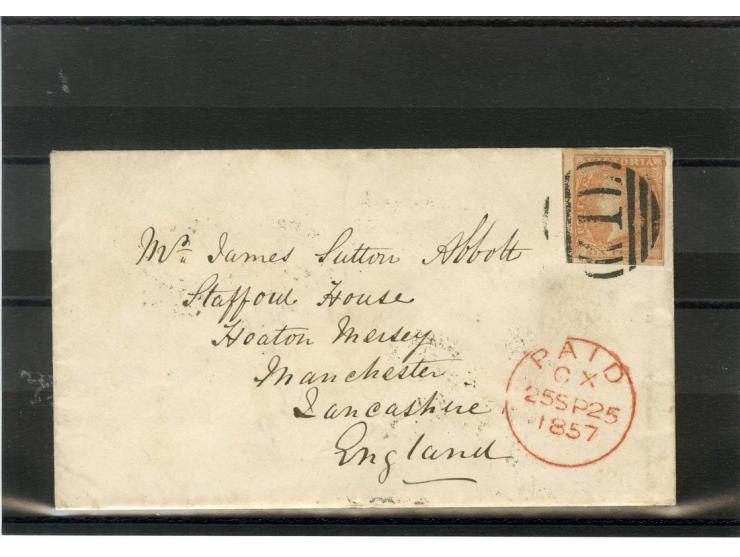 VICTORIA
1
Mr. James Sutton Abbott
Stafford House
Heaton Mersey
Manchester
Lancashire
England
PAID
CX
25SP25
1857